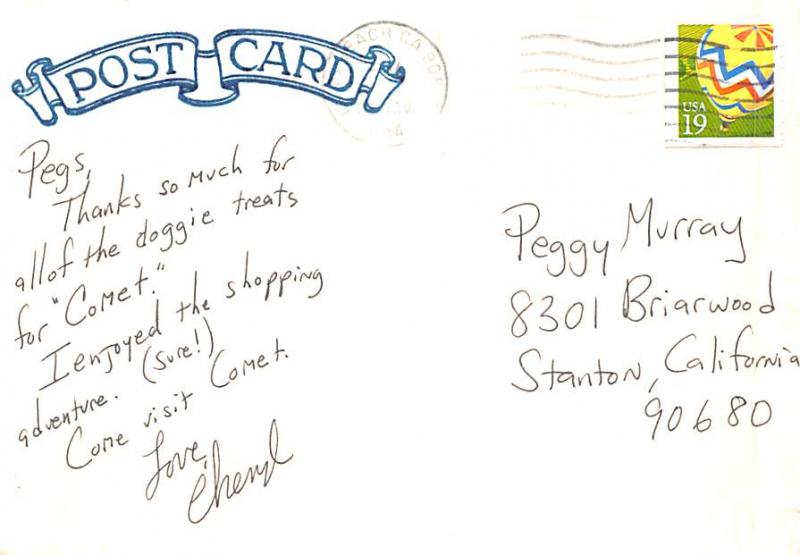 POST CARD
EACH CA 90
USA
19
Pegs,
Thanks so much for
all of the doggie treats
for "Comet."
I enjoyed the shopping
adventure. (sure!)
Come visit Comet.
Love,
Cheryl
Peggy Murray
8301 Briarwood
Stanton, California
90680